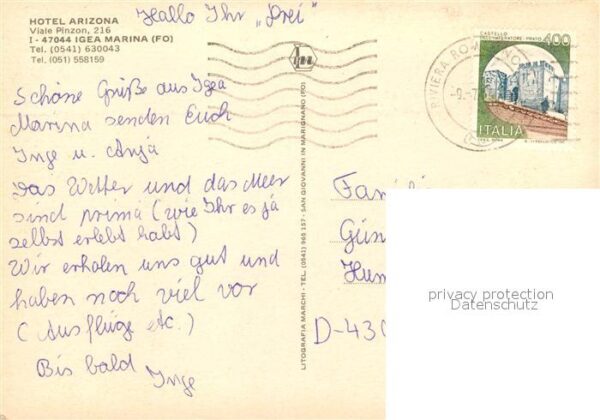 HOTEL ARIZONA
Viale Pinzon, 216
I - 47044 IGEA MARINA (FO)
Tel. (0541) 630043
Tel. (051) 558159
Hallo Ihr „Drei"
Schöne Grüße aus Igea
Marina senden Euch
Inge u. Anja
Das Wetter und das Meer
sind prima (wie Ihr es ja
selbst erlebt habt)
Wir erholen uns gut und
haben noch viel vor
(Ausflüge etc.)
Bis bald
Inge
LITOGRAFIA MARCHI - TEL. (0541) 965 157 - SAN GIOVANNI IN MARIGNANO (FO)
RIVIERA
-9.-7
CASTELLO
PRATO
400
ITALIA
Famili
Gün
D-430
privacy protection
Datenschutz